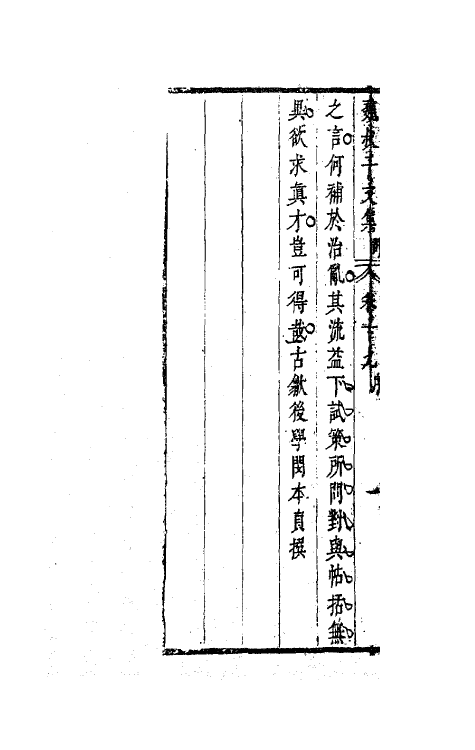 魏叔子文集
卷十九
一
之言何補於治亂其流益下試策所問對與帖括無
異欲求眞才豈可得哉古歙後學閔本貞撰